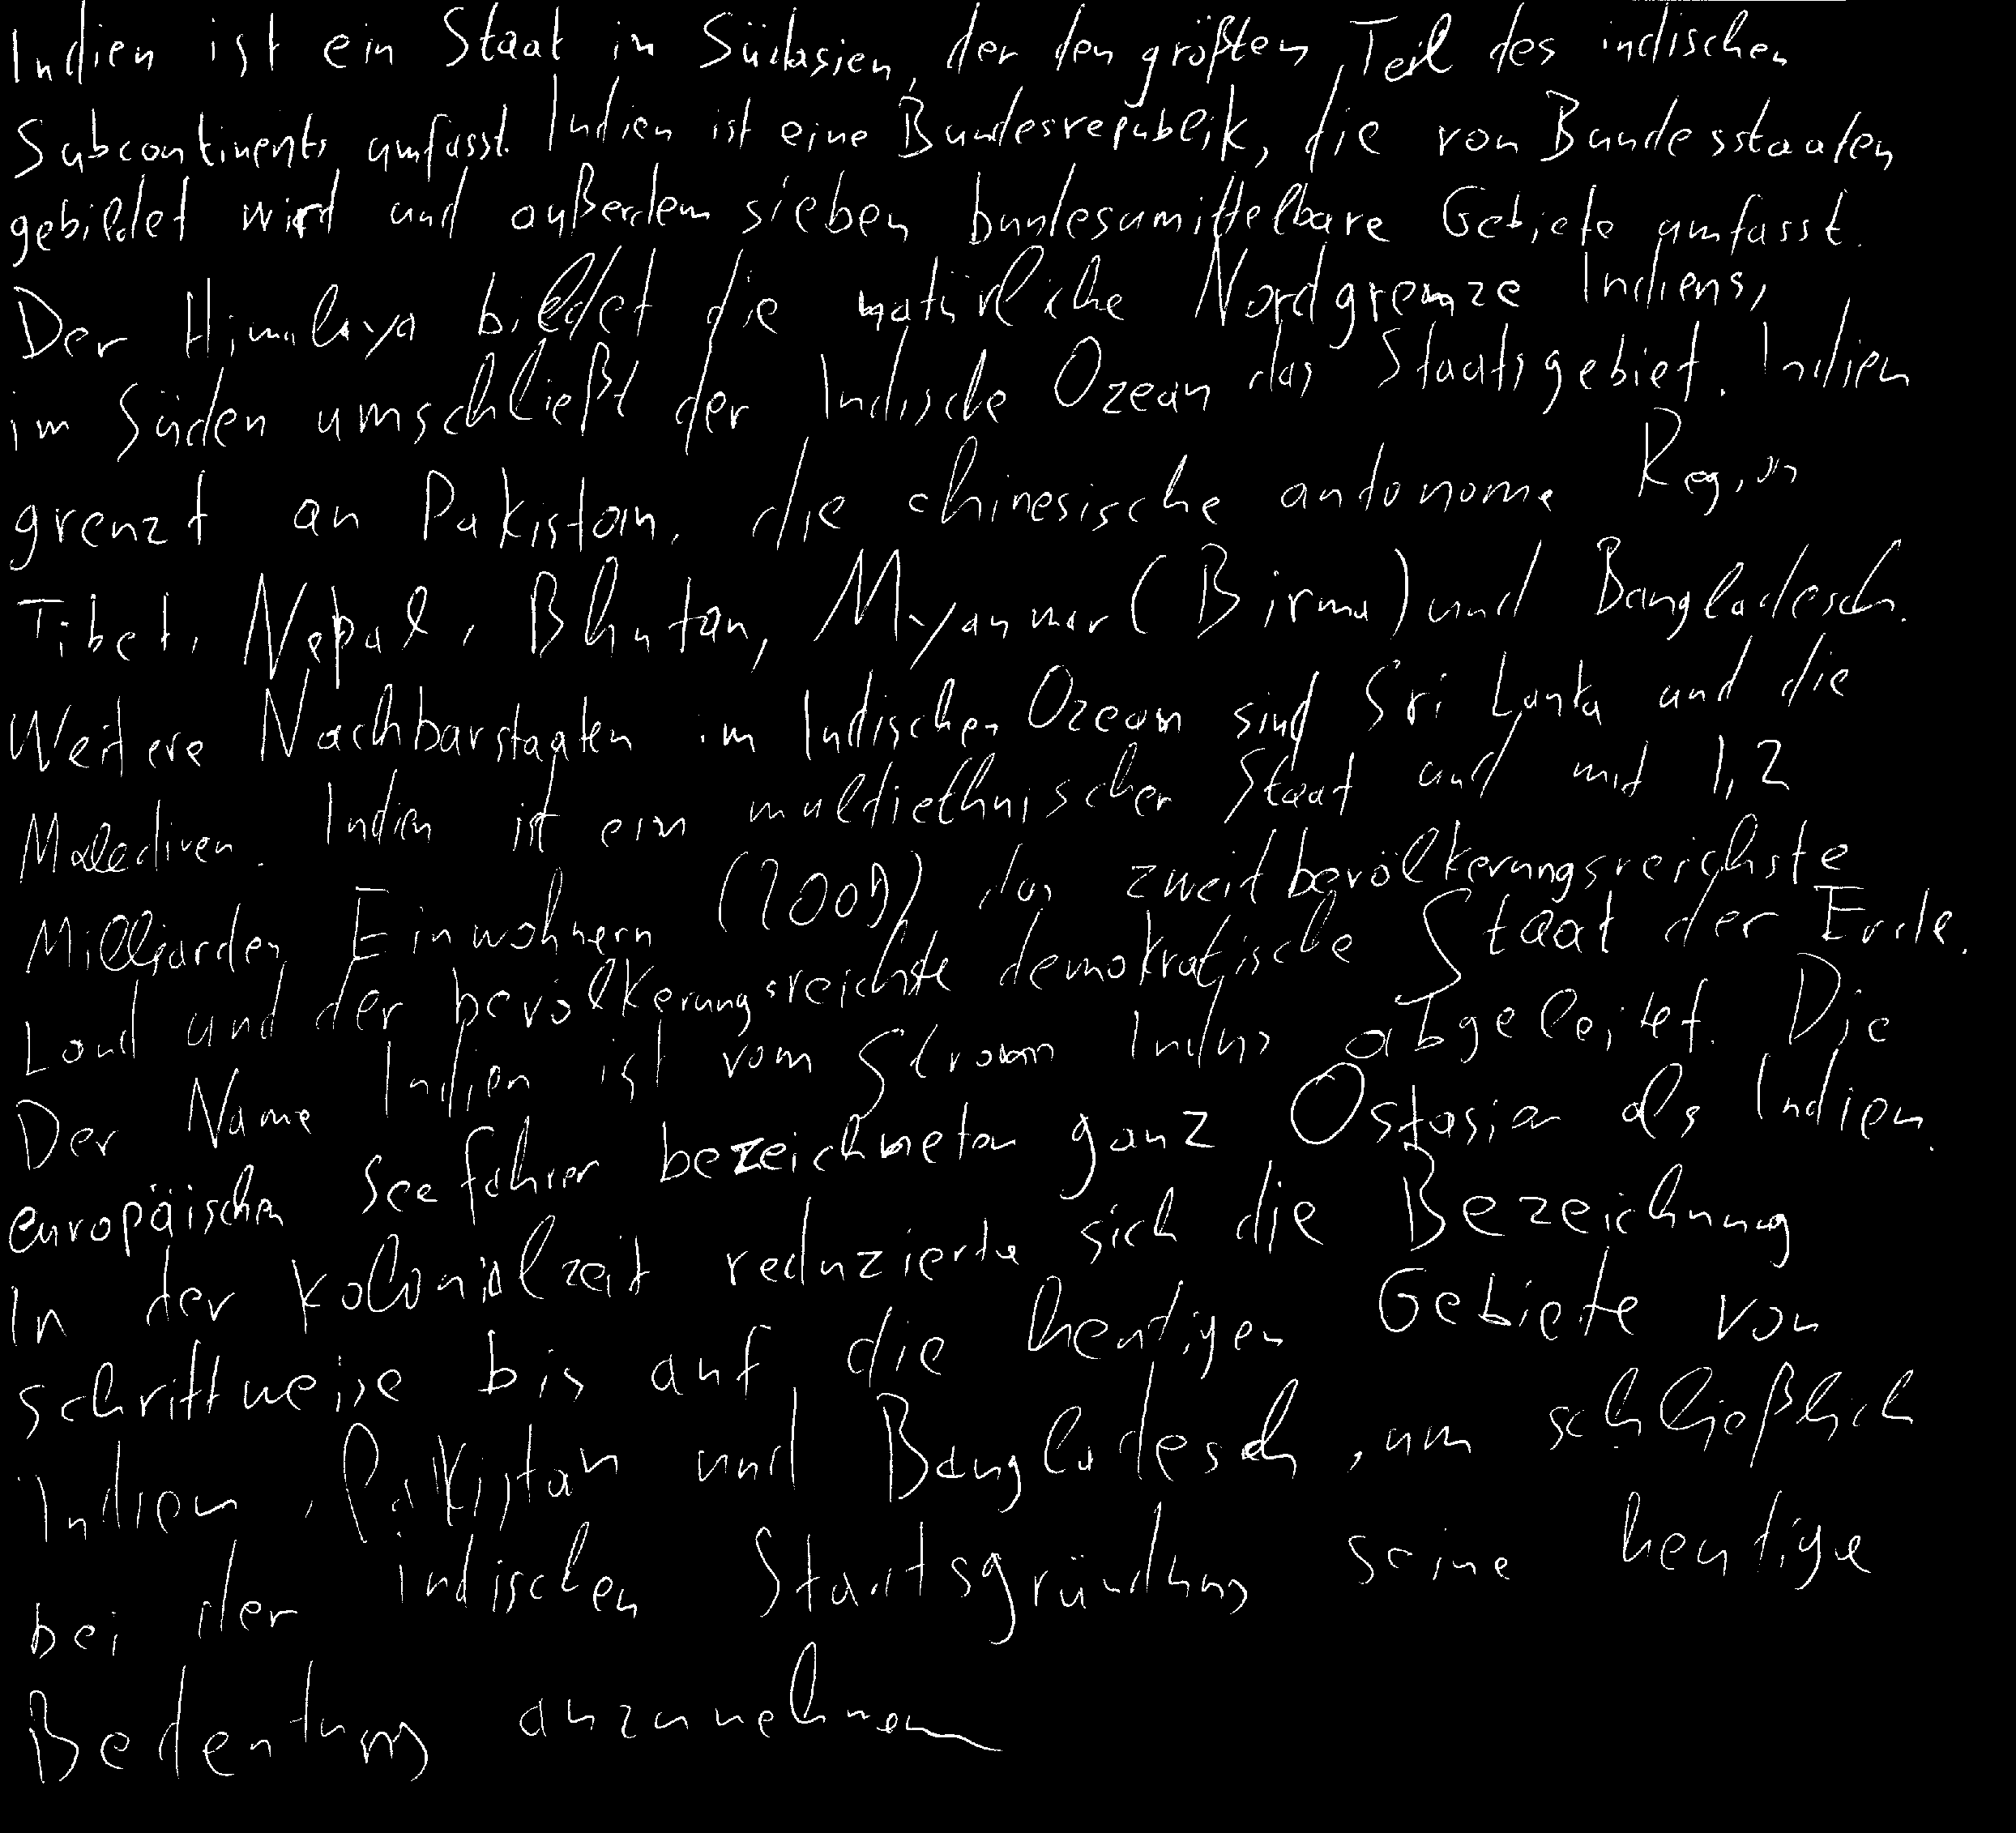 Indien ist ein Staat in Südasien, der den größten Teil des indischen
Subcontinents umfasst. Indien ist eine Bundesrepublik, die von Bundesstaaten
gebildet wird und außerdem sieben bundesumittelbare Gebiete umfasst.
Der Himalaya bildet die natürliche Nordgrenze Indiens,
im Süden umschließt der Indische Ozean das Staatsgebiet. Indien
grenzt an Pakistan, die chinesische autonome Region
Tibet, Nepal, Bhutan, Myanmar (Birma) und Bangladesch.
Weitere Nachbarstaaten im Indischen Ozean sind Sri Lanka und die
Malediven. Indien ist ein multiethnischer Staat und mit 1,2
Milliarden Einwohnern (2009) das zweitbevölkerungsreichste
Land und der bevölkerungsreichste demokratische Staat der Erde.
Der Name Indien ist vom Strom Indus abgeleitet. Die
europäischen Seefahrer bezeichneten ganz Ostasien als Indien.
In der Kolonialzeit reduzierte sich die Bezeichnung
schrittweise bis auf die heutigen Gebiete von
Indien, Pakistan und Bangladesch, um schließlich
bei der indischen Staatsgründung seine heutige
Bedeutung anzunehmen